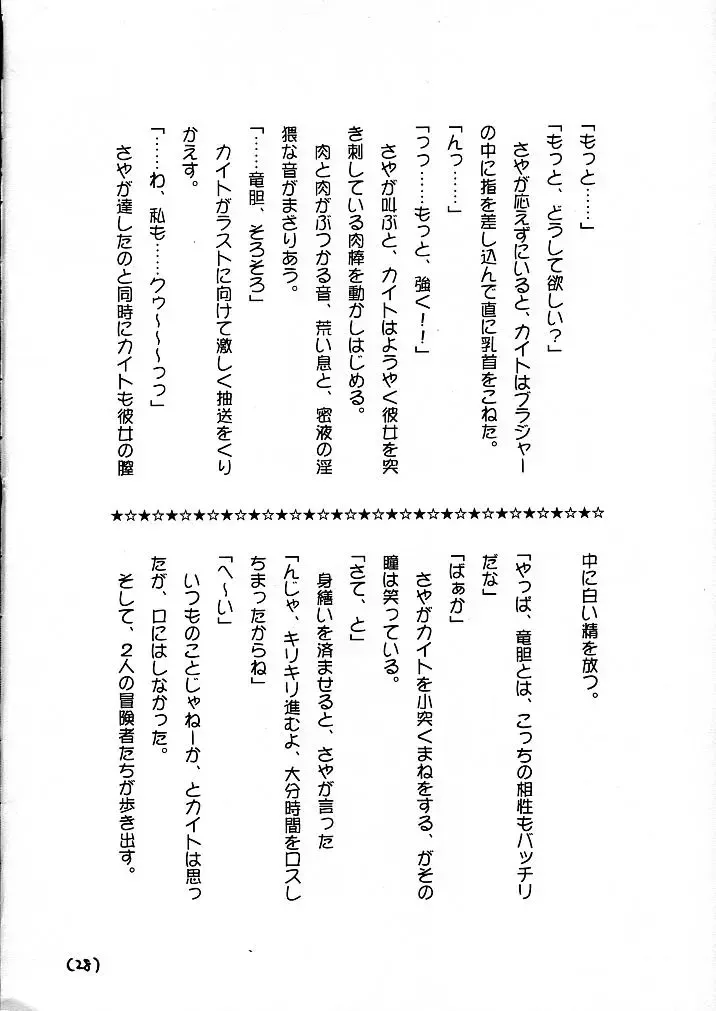 「もっと……」
「もっと、どうして欲しい?」
さやが応えずにいると、カイトはブラジャー
の中に指を差し込んで直に乳首をこねた。
「んっ……」
「っっ……もっと、強く!!」
さやが叫ぶと、カイトはようやく彼女を突
き刺している肉棒を動かしはじめる。
肉と肉がぶつかる音、荒い息と、密液の淫
猥な音がまざりあう。
「……竜胆、そろそろ」
カイトがラストに向けて激しく抽送をくり
かえす。
「……わ、私も……クゥ〜〜〜っっ」
さやが達したのと同時にカイトも彼女の膣
★☆★☆★☆★☆★☆★☆★☆★☆★☆★☆★☆★☆★☆★☆★☆★☆★☆★☆
中に白い精を放つ。
「やっぱ、竜胆とは、こっちの相性もバッチリ
だな」
「ばぁか」
さやがカイトを小突くまねをする、がその
瞳は笑っている。
「さて、と」
身繕いを済ませると、さやが言った
「んじゃ、キリキリ進むよ、大分時間をロスし
ちまったからね」
「へ〜い」
いつものことじゃねーか、とカイトは思っ
たが、口にはしなかった。
そして、2人の冒険者たちが歩き出す。
(28)